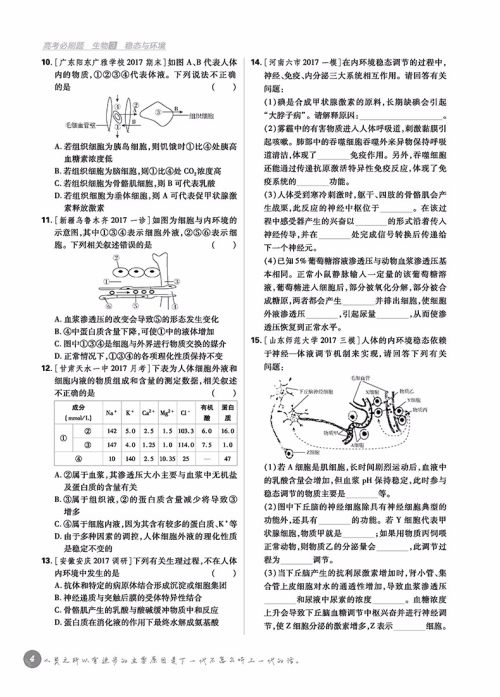 高考必刷题 生物3 稳态与环境
10. [广东阳东广雅学校2017期末]如图A、B代表人体
内的物质,①②③④代表体液。下列说法不正确
的是 ( )
毛细血管壁
组织细胞
A. 若组织细胞为胰岛细胞,则饥饿时①比④处胰高
血糖素浓度低
B. 若组织细胞为脑细胞,则①比④处CO₂浓度高
C. 若组织细胞为骨骼肌细胞,则B可代表乳酸
D. 若组织细胞为垂体细胞,则A可代表促甲状腺激
素释放激素
11. [新疆乌鲁木齐2017一诊]如图为细胞与内环境的
示意图,其中①③④表示细胞外液,②⑤⑥表示细
胞。下列相关叙述错误的是 ( )
A. 血浆渗透压的改变会导致⑤的形态发生变化
B. ④中蛋白质含量下降,可使①中的液体增加
C. 图中①③④是细胞与外界进行物质交换的媒介
D. 正常情况下,①③④的各项理化性质保持不变
12. [甘肃天水一中2017月考]下表为人体细胞外液和
细胞内液的物质组成和含量的测定数据,相关叙述
不正确的是 ( )
成分(mmol/L) Na⁺ K⁺ Ca²⁺ Mg²⁺ Cl⁻ 有机酸 蛋白质
① ② 142 5.0 2.5 1.5 103.3 6.0 16.0
③ 147 4.0 1.25 1.0 114.0 7.5 1.0
④ 10 140 2.5 10.35 25 — 47
A. ②属于血浆,其渗透压大小主要与血浆中无机盐
及蛋白质的含量有关
B. ③属于组织液,②的蛋白质含量减少将导致③
增多
C. ④属于细胞内液,因为其含有较多的蛋白质、K⁺等
D. 由于多种因素的调控,人体细胞外液的理化性质
是稳定不变的
13. [安徽安庆2017调研]下列有关生理过程,不在人体
内环境中发生的是 ( )
A. 抗体和特定的病原体结合形成沉淀或细胞集团
B. 神经递质与突触后膜的受体特异性结合
C. 骨骼肌产生的乳酸与酸碱缓冲物质中和反应
D. 蛋白质在消化液的作用下最终水解成氨基酸
14. [河南六市2017一模]在内环境稳态调节的过程中,
神经、免疫、内分泌三大系统相互作用。请回答有关
问题:
(1)碘是合成甲状腺激素的原料,长期缺碘会引起
“大脖子病”。请解释原因:________。
(2)雾霾中的有害物质进入人体呼吸道,刺激黏膜引
起咳嗽。肺部中的吞噬细胞吞噬外来异物保持呼吸
道清洁,体现了________免疫作用。另外,吞噬细胞
还能通过传递抗原激活特异性免疫反应,体现了免
疫系统的________功能。
(3)人体受到寒冷刺激时,躯干、四肢的骨骼肌会产
生战栗,此反应的神经中枢位于________。在该过
程中感受器产生的兴奋以________的形式沿着传入
神经传导,并在________处完成信号转换后传递给
下一个神经元。
(4)已知5%葡萄糖溶液渗透压与动物血浆渗透压基
本相同。正常小鼠静脉输入一定量的该葡萄糖溶
液,葡萄糖进入细胞后,部分被氧化分解,部分被合
成糖原,两者都会产生________并排出细胞,使细胞
外液渗透压________,引起尿量________,从而使渗
透压恢复到正常水平。
15. [山东师范大学2017三模]人体的内环境稳态依赖
于神经—体液调节机制来实现,请回答下列有关
问题:
毛细血管
下丘脑神经细胞
X细胞
物质乙
Y细胞
物质丙
物质甲
A细胞
Z细胞
(1)若A细胞是肌细胞,长时间剧烈运动后,血液中
的乳酸含量会增加,但血浆pH保持稳定,此时参与
稳态调节的物质主要是________等。
(2)图中下丘脑的神经细胞除具有神经细胞典型的
功能外,还具有________的功能。若Y细胞代表甲
状腺细胞,物质甲就是________;如果用物质丙饲喂
正常动物,则物质乙的分泌量会________,此调节过
程为________调节。
(3)当下丘脑产生的抗利尿激素增加时,肾小管、集
合管上皮细胞对水的通透性增加,导致血浆渗透压
________和尿液中尿素的浓度________。血糖浓度
上升会导致下丘脑血糖调节中枢兴奋并进行神经调
节,使Z细胞分泌的激素增多,Z表示________细胞。
4 人类之所以有进步的主要原因是下一代不怎么听上一代的话。